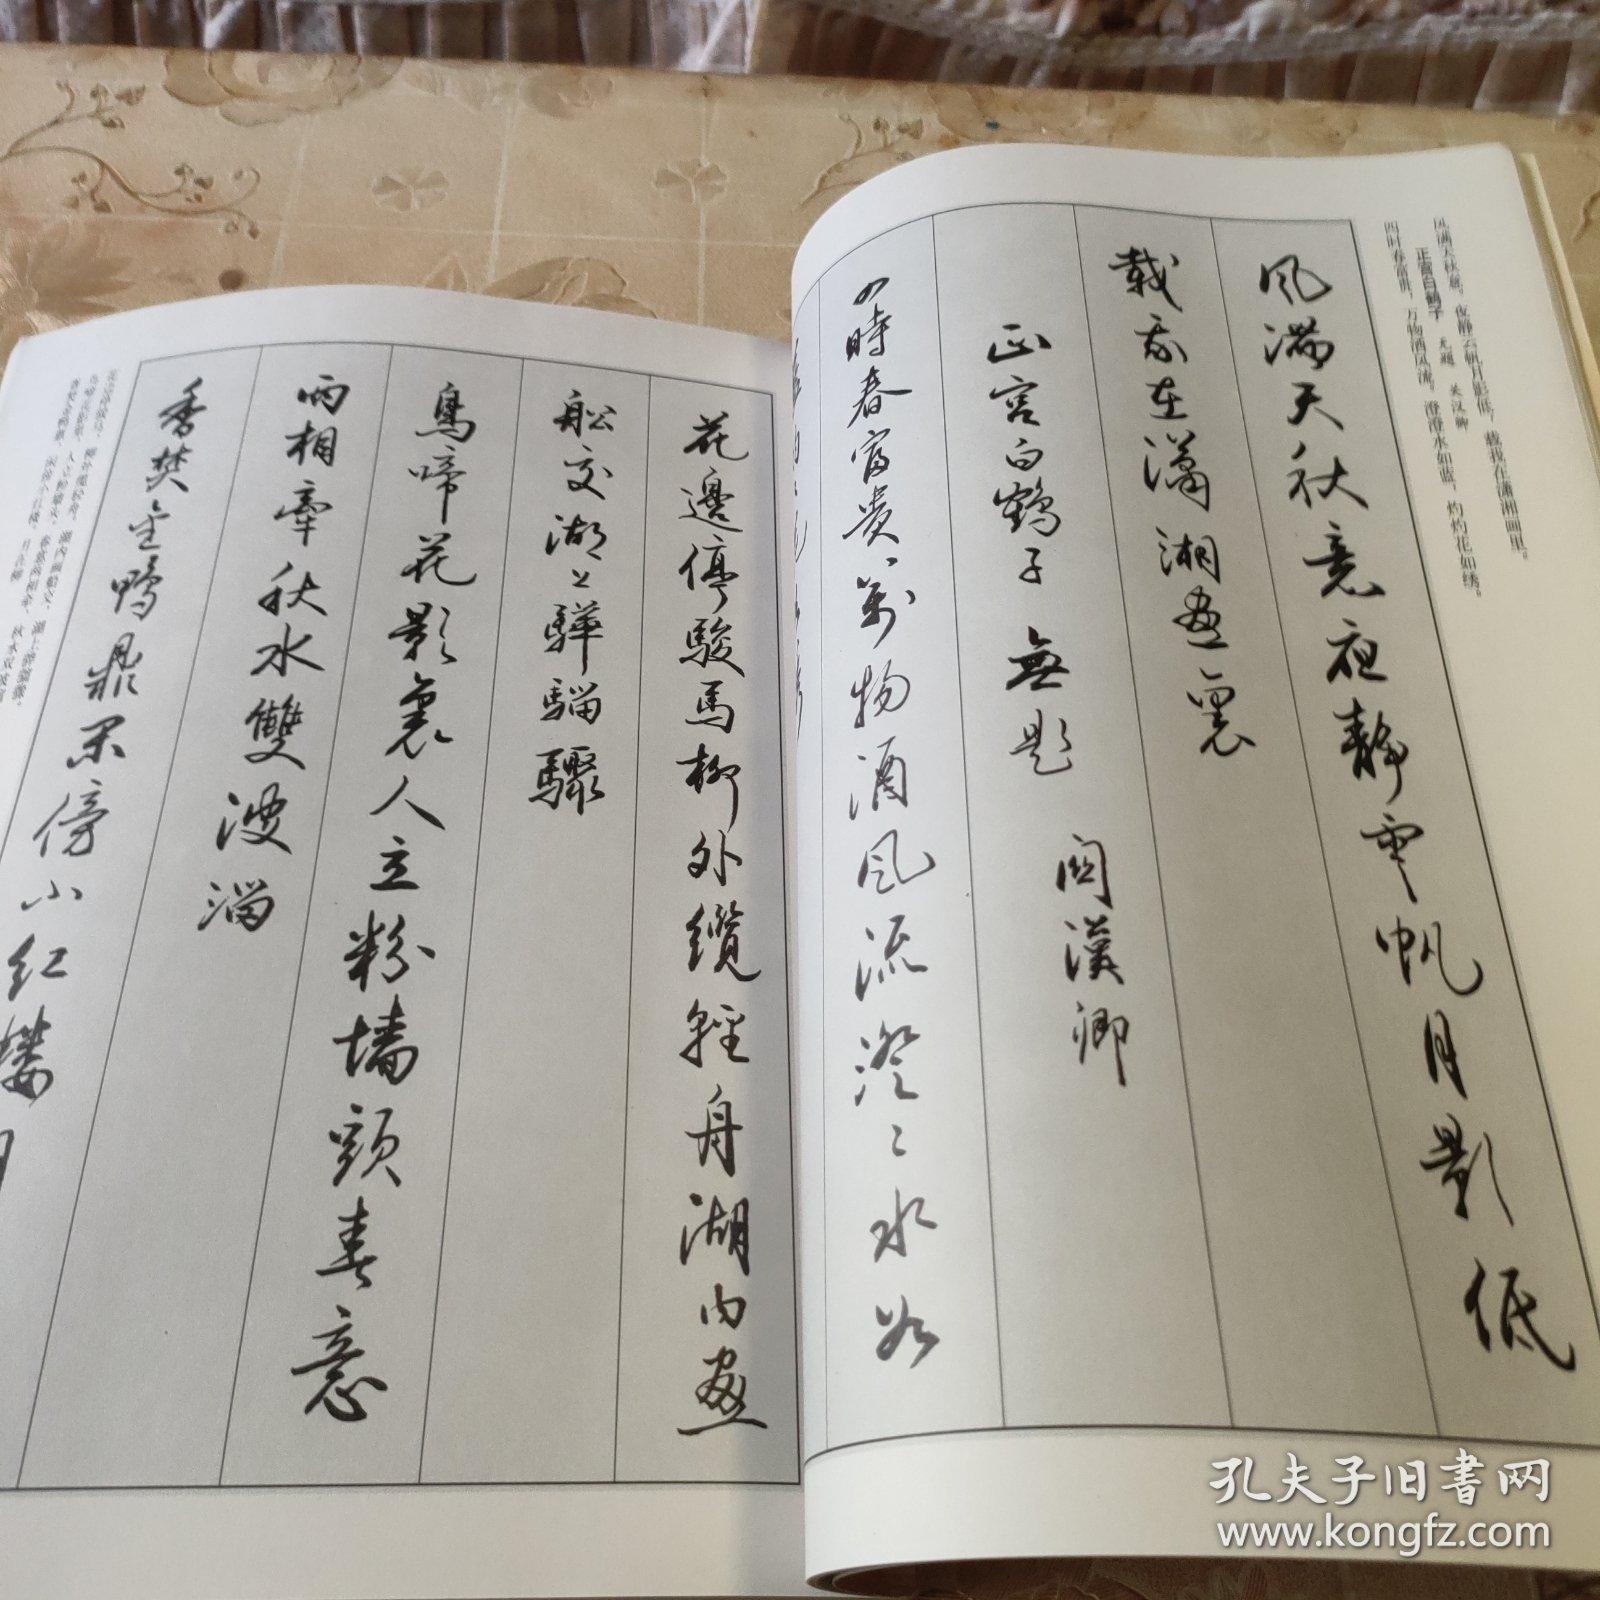 风满天秋意，夜静云帆月影低，载我在潇湘画里。
正宫白鹤子 无题 关汉卿
四时春富贵，万物酒风流。澄澄水如蓝，灼灼花如绣。
風满天秋意夜静雲帆月影低
載我在瀟湘畫裏
正宫白鹤子 無題 関漢卿
四時春富貴萬物酒風流澄〻水如
花邊停駿馬柳外纜輕舟湖内畫
船交湖上驊騮驟
鳥啼花影裏人立粉墙頭春意
两相牽秋水雙波溜
香焚金鴨鼎閑傍小红樓
孔夫子旧書网
www.kongfz.com